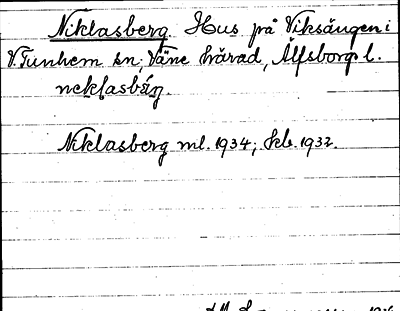 Niklasberg. Hus på Viksängen i
V. Tunhem sn, Väne härad, Älfsborgs l.
neklasbérg.
Niklasberg ml. 1934; skb. 1932.